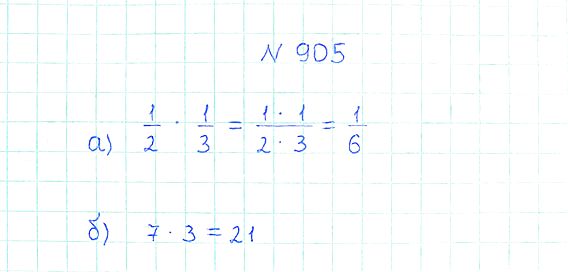 N 905
а) 1/2 · 1/3 = 1 · 1/2 · 3 = 1/6
б) 7 · 3 = 21